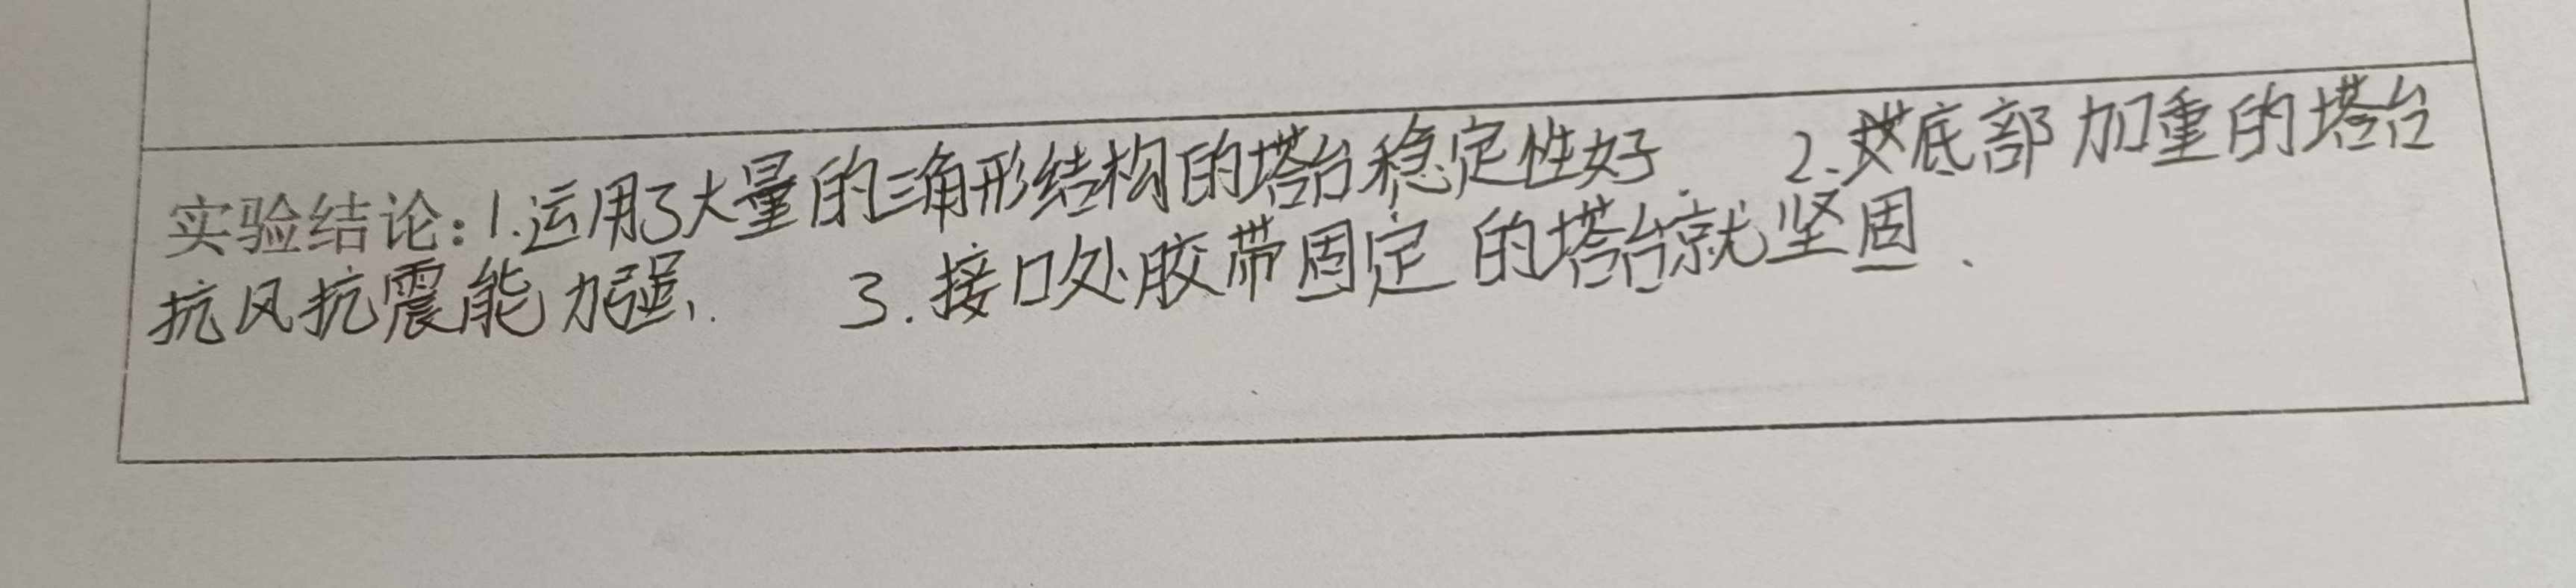 实验结论:1.运用了大量的三角形结构的塔台稳定性好. 2.底部加重的塔台
抗风抗震能力强. 3.接口处胶带固定的塔台就坚固、